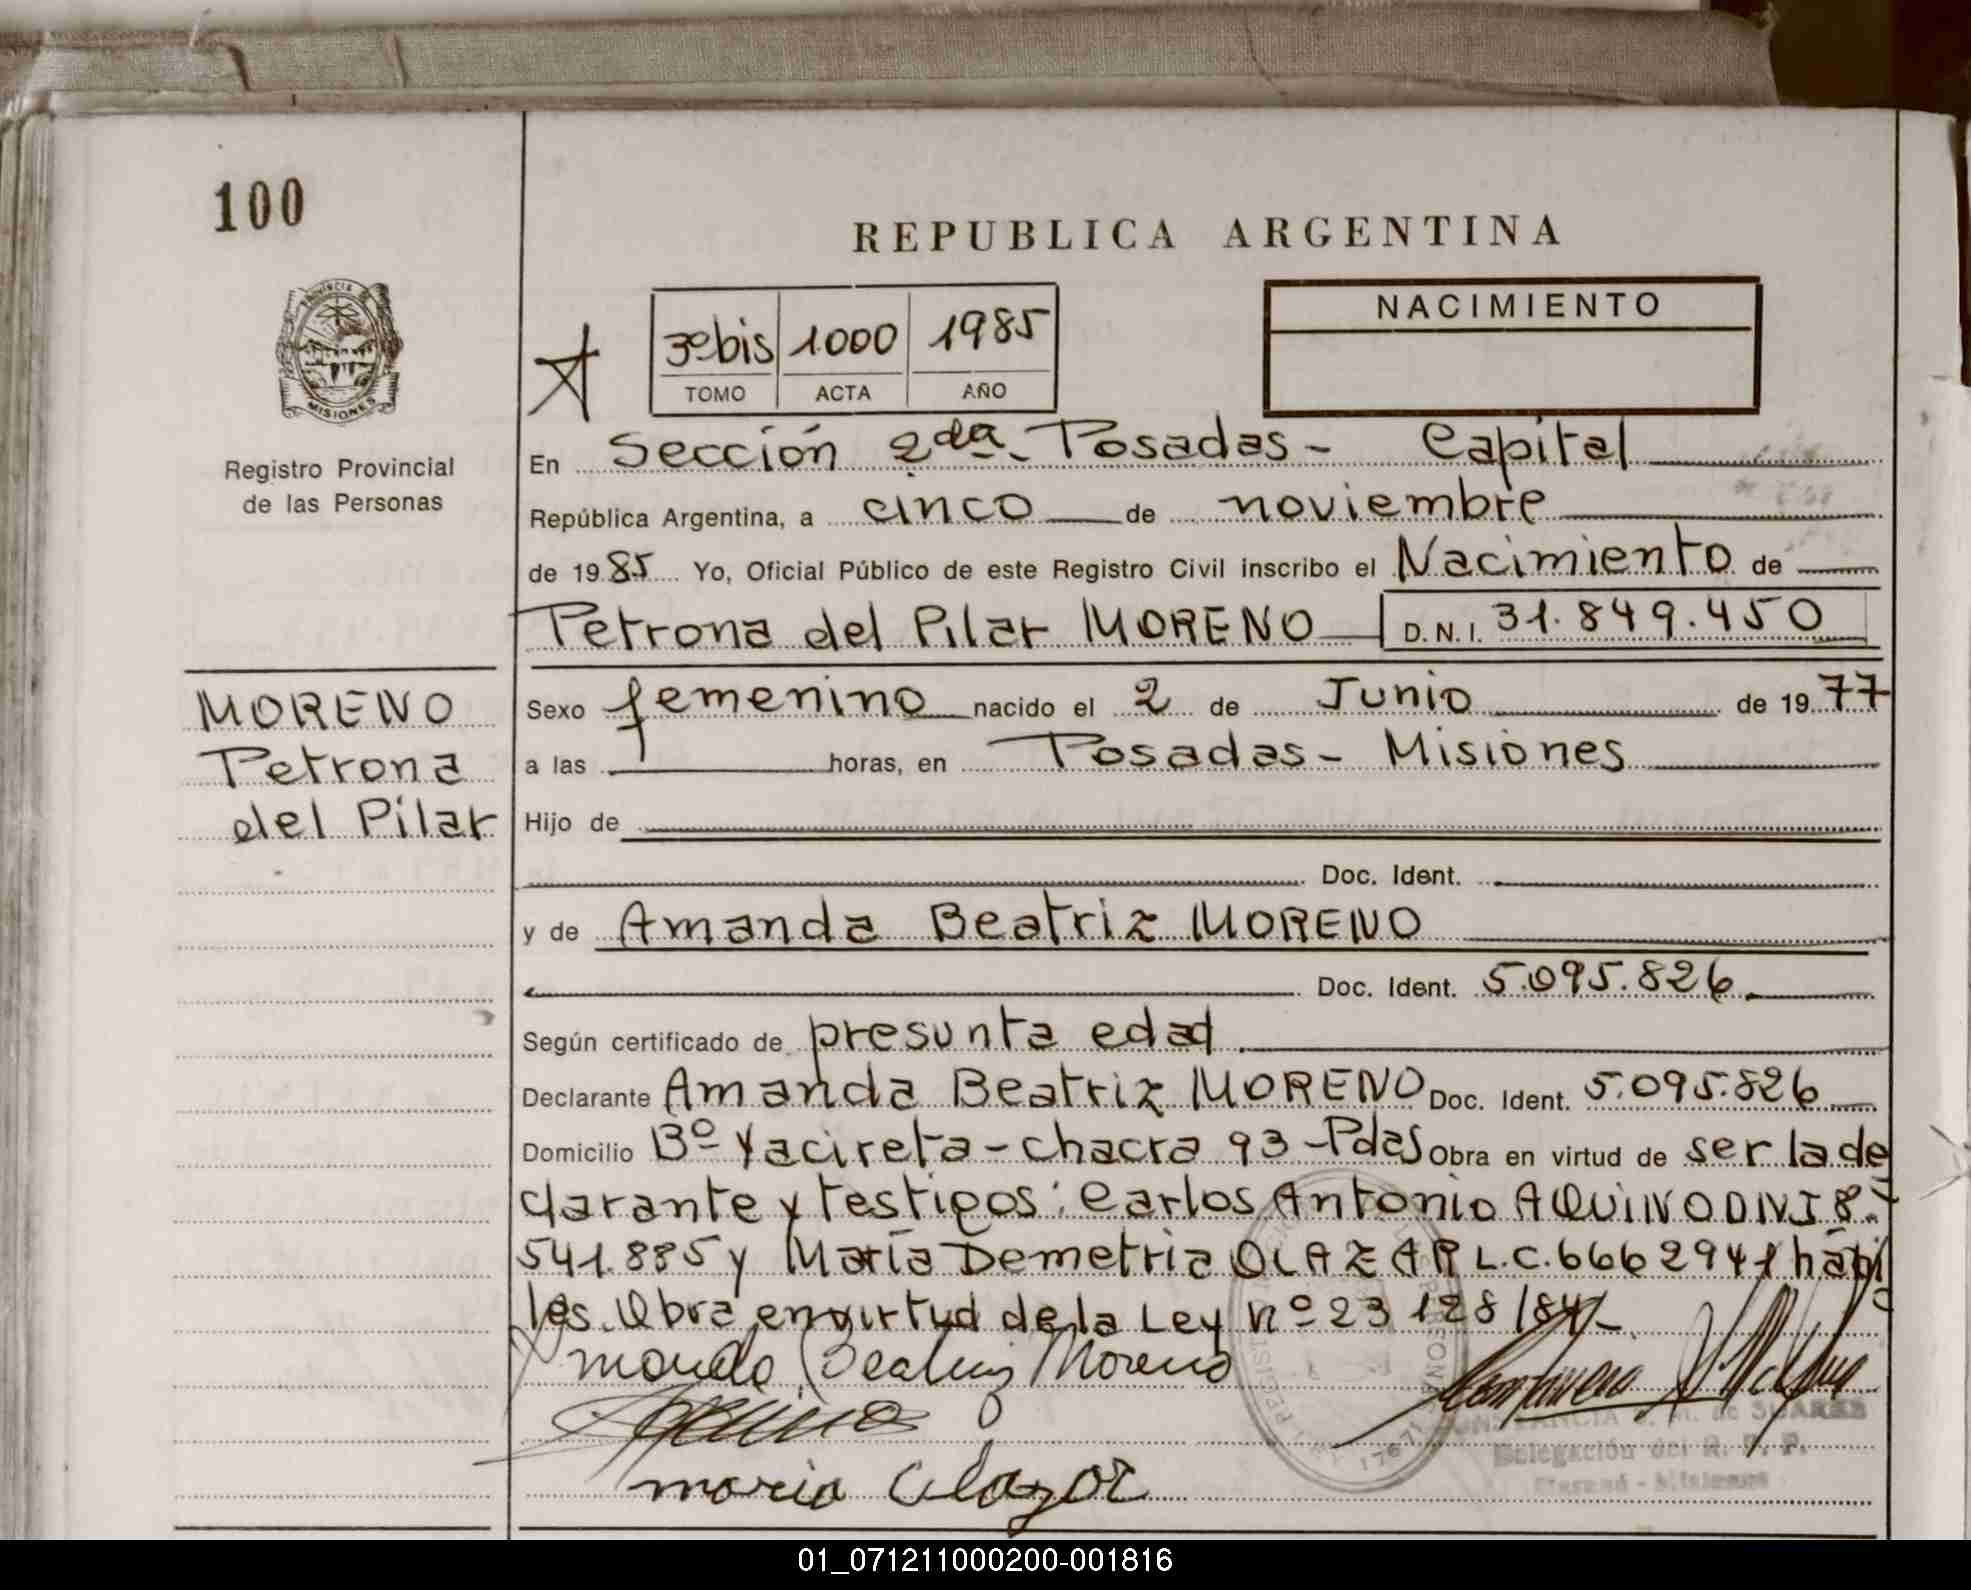 100
REPUBLICA ARGENTINA
PROVINCIA DE
MISIONES
Registro Provincial
de las Personas
3º bis 1000 1985
TOMO ACTA AÑO
NACIMIENTO
En Sección 2da - Posadas - Capital
República Argentina, a cinco de noviembre
de 1985 Yo, Oficial Público de este Registro Civil inscribo el Nacimiento de
Petrona del Pilar MORENO D.N.I. 31.849.450
MORENO
Petrona
del Pilar
Sexo femenino nacido el 2 de Junio de 1977
a las horas, en Posadas - Misiones
Hijo de
Doc. Ident.
y de Amanda Beatriz MORENO
Doc. Ident. 5.095.826
Según certificado de presunta edad
Declarante Amanda Beatriz MORENO Doc. Ident. 5.095.826
Domicilio Bº Yacireta - chacra 93 - Pdas Obra en virtud de ser la de
clarante y testigos: Carlos Antonio AQUINO DNI 8.
541.885 y María Demetria OLAZAR L.C. 6662941 hábi
les. Obra en virtud de la Ley nº 23 128/84 -
Amanda Beatriz Moreno
maria Olazar
de SUAREZ
Delegación del R. P. P.
- Misiones
01_071211000200-001816